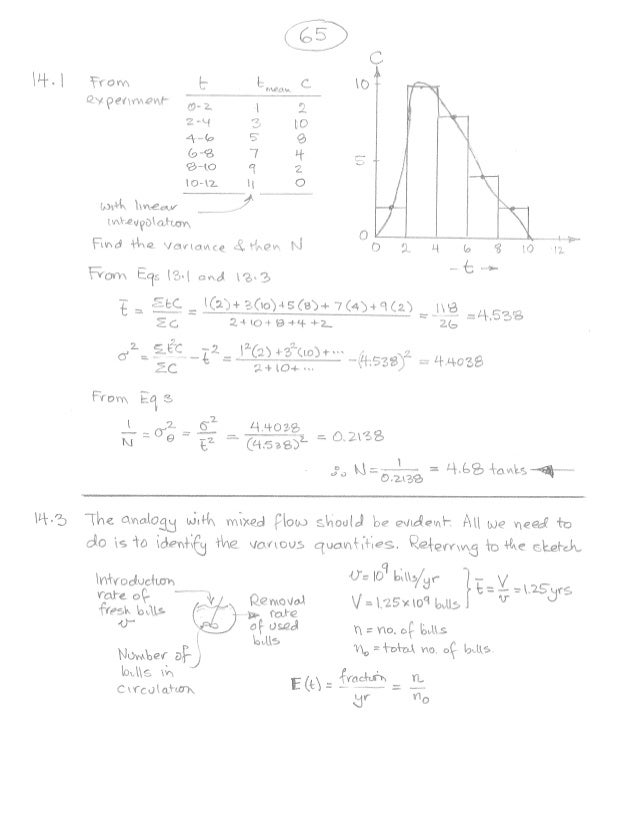 65
14.1 From experiment
t tmean C
0-2 1 2
2-4 3 10
4-6 5 8
6-8 7 4
8-10 9 2
10-12 11 0
with linear
interpolation
C
10
5
0
0 2 4 6 8 10 12
- t →
Find the variance & then N
From Eqs 13.1 and 13.3
t̄ = ΣtC / ΣC = 1(2)+3(10)+5(8)+7(4)+9(2) / 2+10+8+4+2 = 118 / 26 = 4.538
σ² = Σt²C / ΣC - t̄² = 1²(2)+3²(10)+... / 2+10+... - (4.538)² = 4.4038
From Eq 3
1/N = σθ² = σ² / t̄² = 4.4038 / (4.538)² = 0.2138
∴ N = 1 / 0.2138 = 4.68 tanks
14.3 The analogy with mixed flow should be evident. All we need to
do is to identify the various quantities. Referring to the sketch
Introduction
rate of
fresh bills
v
Removal
rate
of used
bills
Number of
bills in
circulation
v = 10⁹ bills/yr
V = 1.25x109 bills
t̄ = V/v = 1.25 yrs
n = no. of bills
n₀ = total no. of bills.
E(t) = fraction / yr = n / n₀